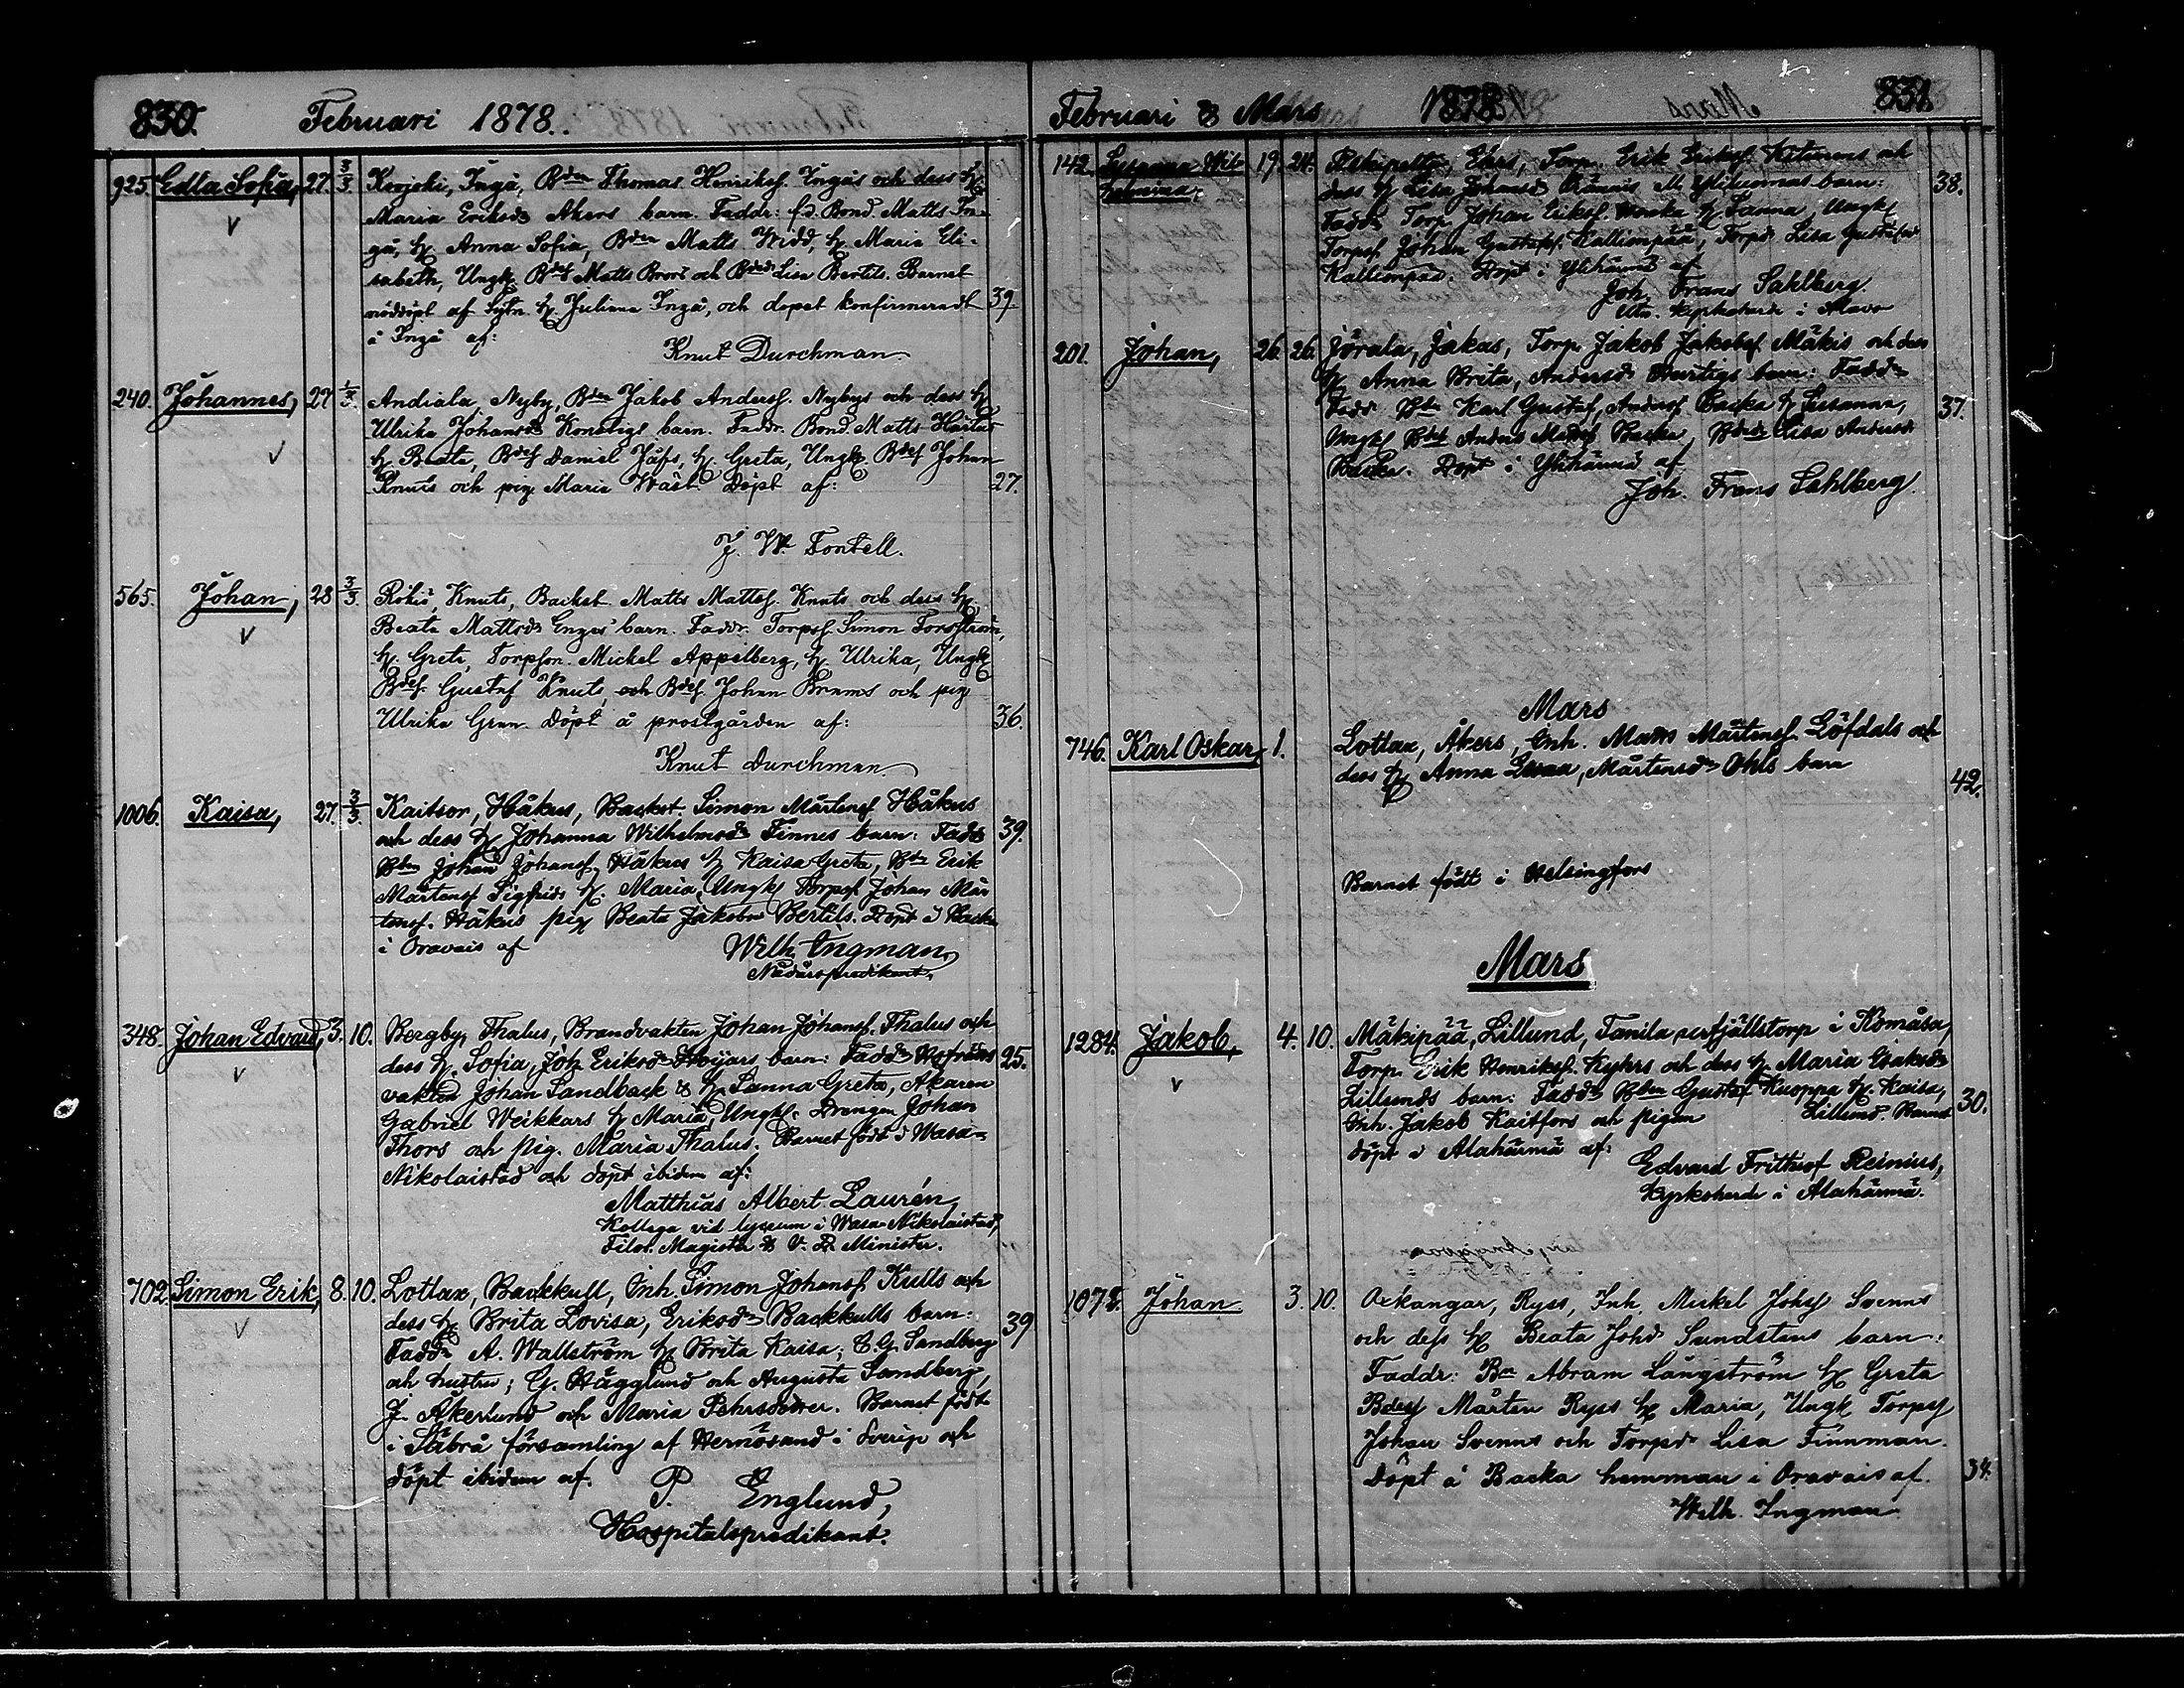 830.
Februari 1878.
925. Edla Sofia, 27. 3/3. Keojoki, Ingå, Bden Thomas Henriksf. Ingås och dess H.
Maria Eriksdr Akers barn. Faddr: f.d. Bond. Matts In-
gå, H. Anna Sofia, Bden Matts Widd, H. Maria Eli-
sabeth, Ungk. Bdes. Matts Brors och Bdedr Lisa Bertils. Barnet
nöddöpt af H. Juliana Ingå, och dopet konfirmeradt 39
å Ingå af:
Knut Durchman
240. Johannes, 27 Andiala, Nyby, Bden Jakob Andersf. Nybys och dess H
Ulrika Johansdr barn. Faddr. Bond. Matts
H. Beata, Bdesf Daniel Jåfs, H. Greta, Ungk. Bdesf Johan
Knuts och pig. Maria Wäst. Döpt af: 27.
J. W. Fontell.
565. Johan, 28 3/3. Rökiö, Knuts, Backst. Matts Mattsf. Knuts och dess H.
Beata Mattsdr Enges barn. Faddr. Torpsf. Simon Forsström,
H. Greta, Torpson. Mickel Appelberg, H. Ulrika, Ungk
Bdesf. Gustaf Knuts, och Bdesf Johan och pig
Ulrika Gran. Döpt å prostgården af: 36.
Knut Durchman
1006. Kaisa, 27. 3/3. Kaitsor, Håkus, Backst. Simon Mårtensf Håkus
och dess H. Johanna Wilhelmsdr Finnes barn: Faddr 39.
Bden Johan Johansf. Håkus H Kaisa Greta, Bden Erik
Mårtensf Sigfrids H. Maria, Ungk Torpsf Johan Mår
tensf. Håkus pig Beata Jakobsdr Bertils. Döpt å Backa
i Oravais af Wilh. Ingman,
Nådårspredikant.
348. Johan Edvard, 3. 10. Bergby, Thalus, Brandvakten Johan Johansf. Thalus och
dess H. Sofia, Joh. Eriksdr barn: Faddr 25.
vakten Johan Sandback & H. Sanna Greta, Akaren
Gabriel Weikkars H Maria, Ungk. Drengen Johan
Thors och pig. Maria Thalus. Barnet född i Wasa-
Nikolaistad och döpt ibidem af:
Matthias Albert Laurén,
Kollega vid lyceum i Wasa-Nikolaistad,
Filos. Magister & V. D. Minister.
702. Simon Erik, 8. 10. Lottax, Backkull, Inh. Simon Johansf. Kulls och
dess H. Brita Lovisa, Eriksdr Backkulls barn: 39
Faddr A. Wallström H Brita Kaisa; C. G. Sandberg
och hustru; G. Hägglund och Augusta Sandberg,
J. Åkerlund och Maria Pehrsdotter. Barnet född
i Säbrå församling af Hernösand i Sverige och
döpt ibidem af. P. Englund,
Hospitalspredikant.
Februari & Mars 1878 831.
142. Susanna Wil- 19. 24. Eers, Torp. Erik Eriksf. och
helmina, dess H Lisa Johansdr barn: 38.
Faddr Torp. Johan Eriksf. H Sanna, Ungk
Torpsf Johan Gustafsf. Kallionpää, Torpdr Lisa Gustafsdr
Kallionpää. Döpt i Ylihärmä af
Joh. Frans Sahlberg.
Utn. Kyrkoherde i Alavo
201. Johan, 26. 26. Jörala, Jakas, Torp. Jakob Jakobsf Mäkis och dess
H. Anna Brita, Andersdr barn: Faddr
Faddr Bden Karl Gustaf, Andersf Backa H Susanna, 37.
Ungk Bdesf Anders Mattsf Backa, Bdedr Lisa Andersdr
Backa. Döpt i Ylihärmä af
Joh. Frans Sahlberg.
Mars
746. Karl Oskar, 1. Lottax, Åkers, Inh. Matts Mårtensf Löfdals och
dess H Anna Mårtensdr Ohls barn 42.
Barnet född i Helsingfors
Mars
1284. Jakob, 4. 10. Mäkipää, Lillund, Tanila torp i Komåsa,
Torp. Erik Henriksf. Kyhrs och dess H Maria Isaksdr
Lillunds barn: Faddr Bden Gustaf Kuoppa H. Kaisa, 30.
Inh. Jakob Kaitfors och pigan Lillund. Barnet
döpt i Alahärmä af:
Edvard Frithiof Reinius,
Kyrkoherde i Alahärmä.
1078. Johan 3. 10. Oxkangar, Ryss, Inh. Mickel Johsf Svenns
och dess H Beata Johsdr Sundstens barn:
Faddr: Bn Abram Långström H Greta
Bdesf Mårten Ryss H Maria, Ungk Torpsf
Johan Svenns och Torpdr Lisa Finnman.
Döpt å Backa hemman i Oravais af. 34.
Wilh. Ingman